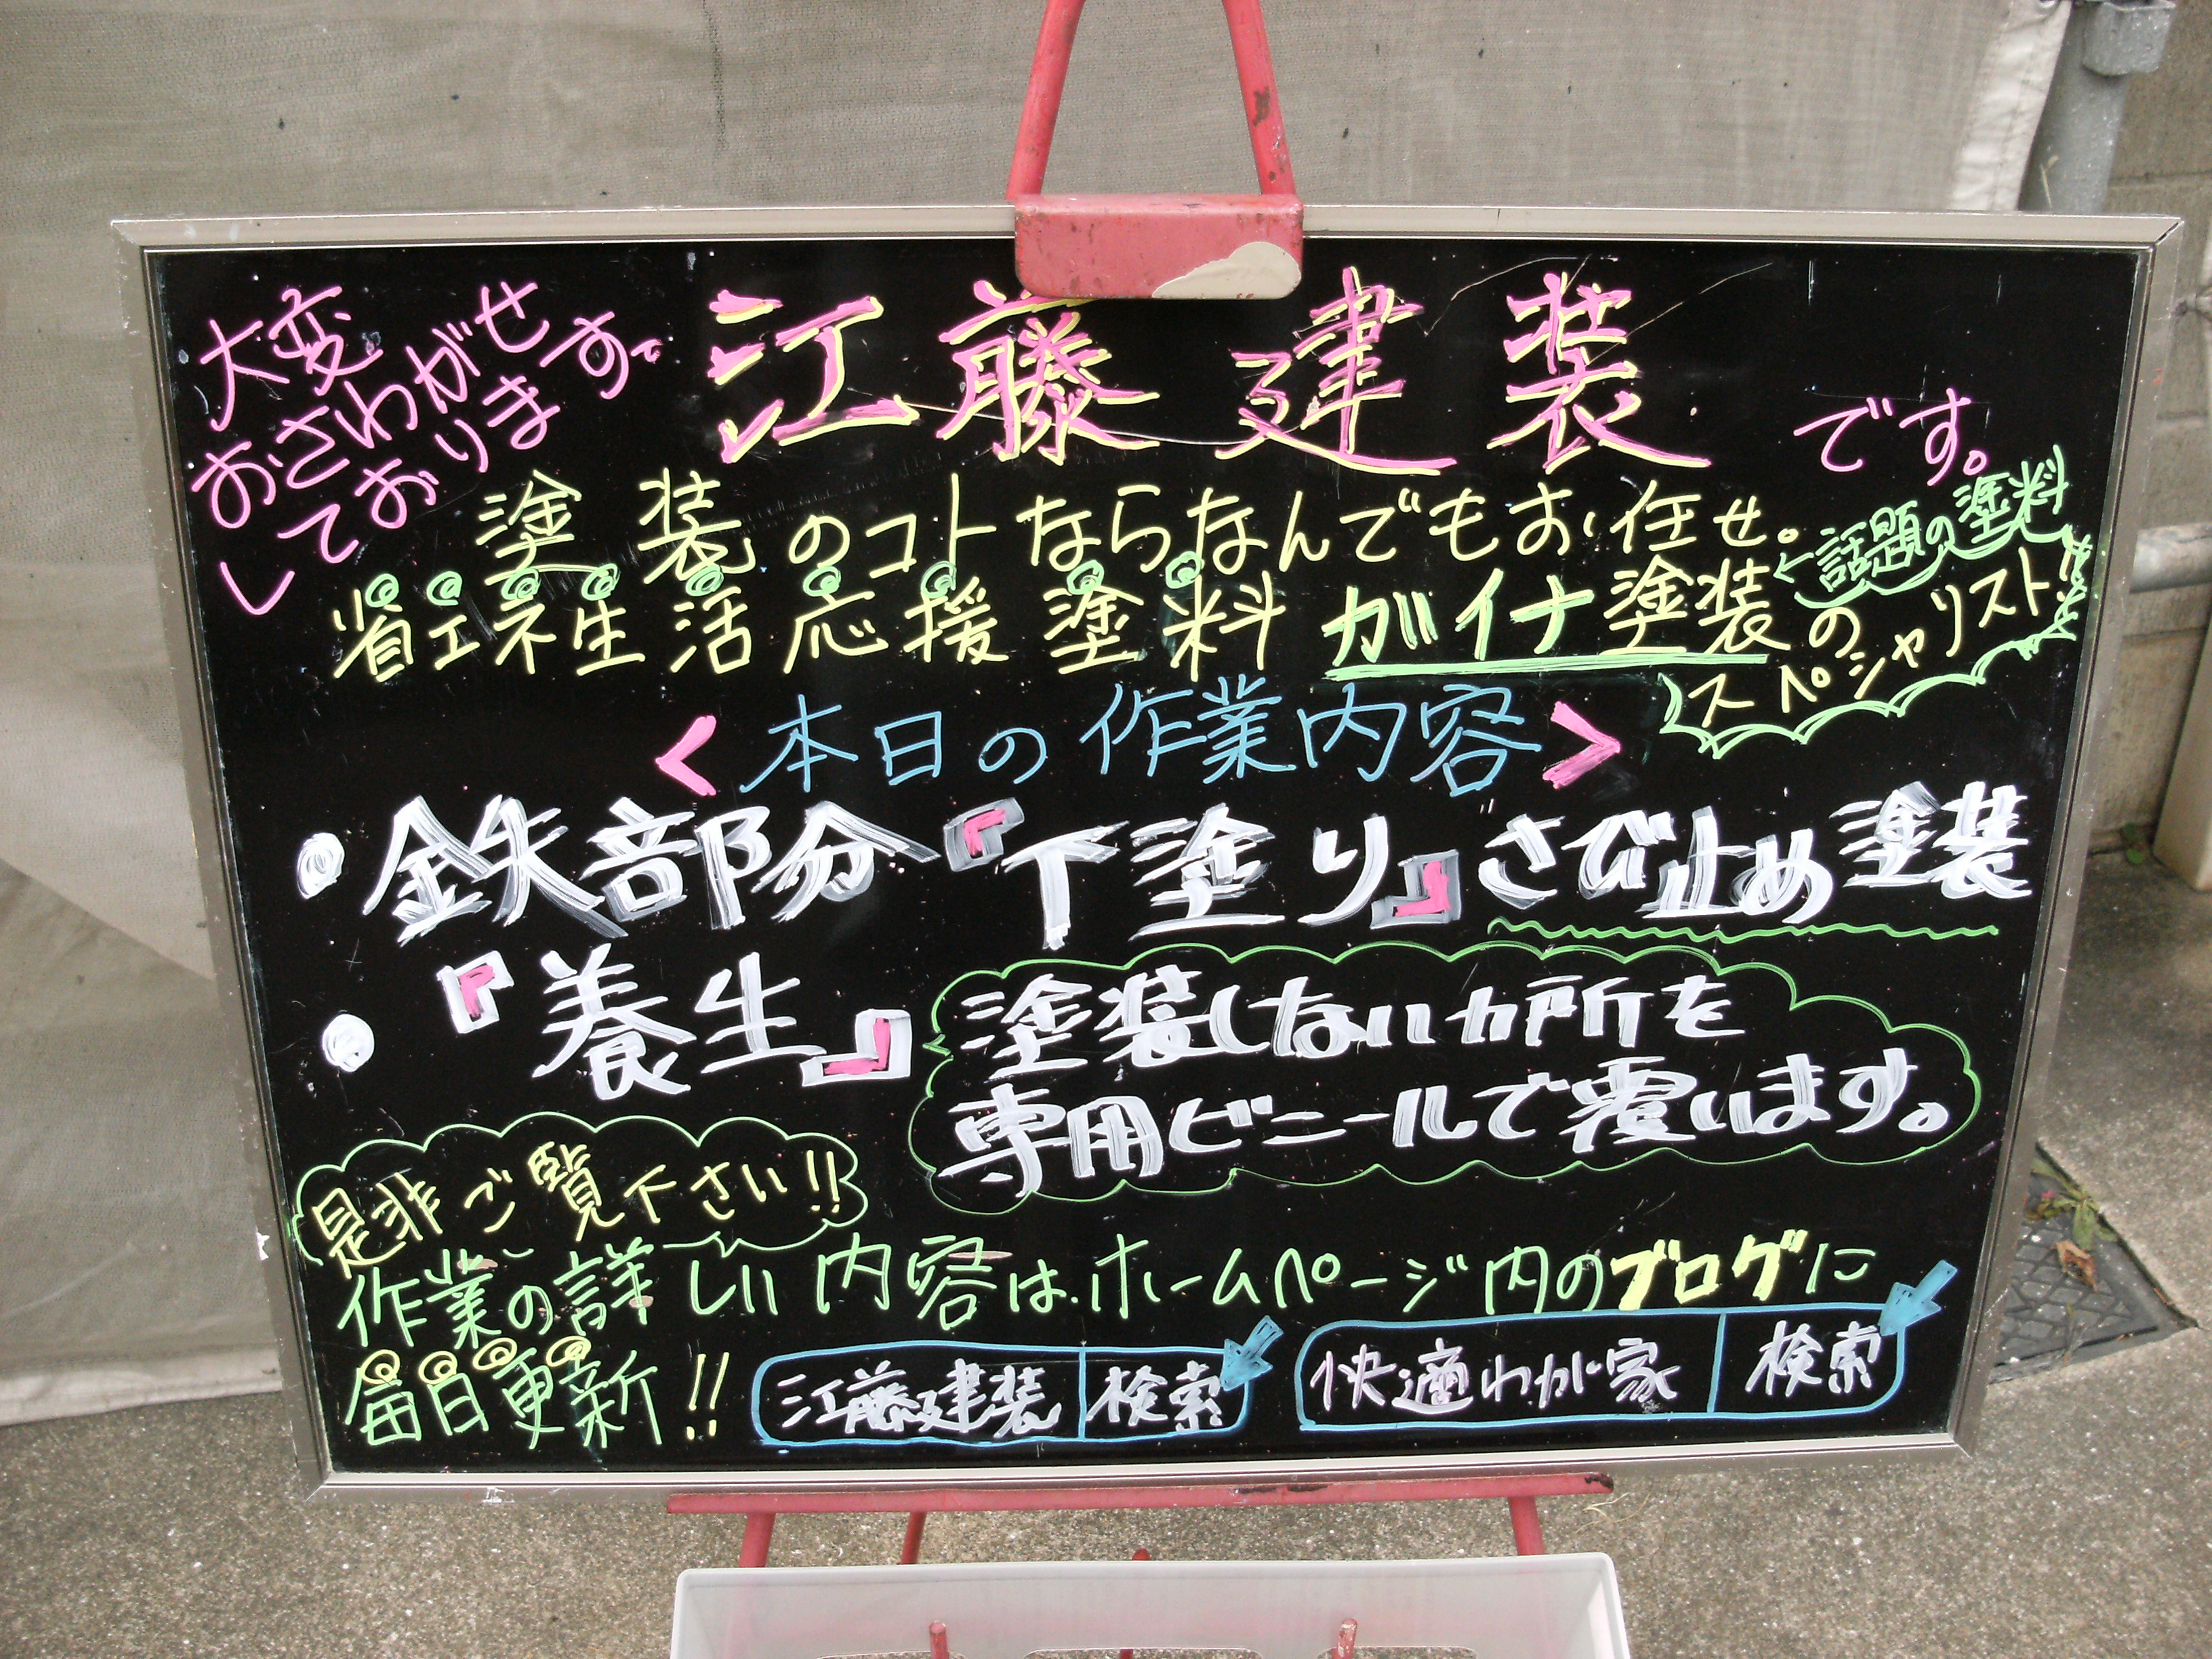 大変
おさわがせ
しております。
江藤建装
です。
塗装のコトならなんでもお任せ。
←話題の塗料
省エネ生活応援塗料ガイナ塗装の
スペシャリスト!!
<本日の作業内容>
●鉄部分『下塗り』さび止め塗装
●『養生』
塗装しないカ所を
専用ビニールで覆います。
是非ご覧下さい!!
作業の詳しい内容はホームページ内のブログに
毎日更新!!
江藤建装 検索
快適わが家 検索